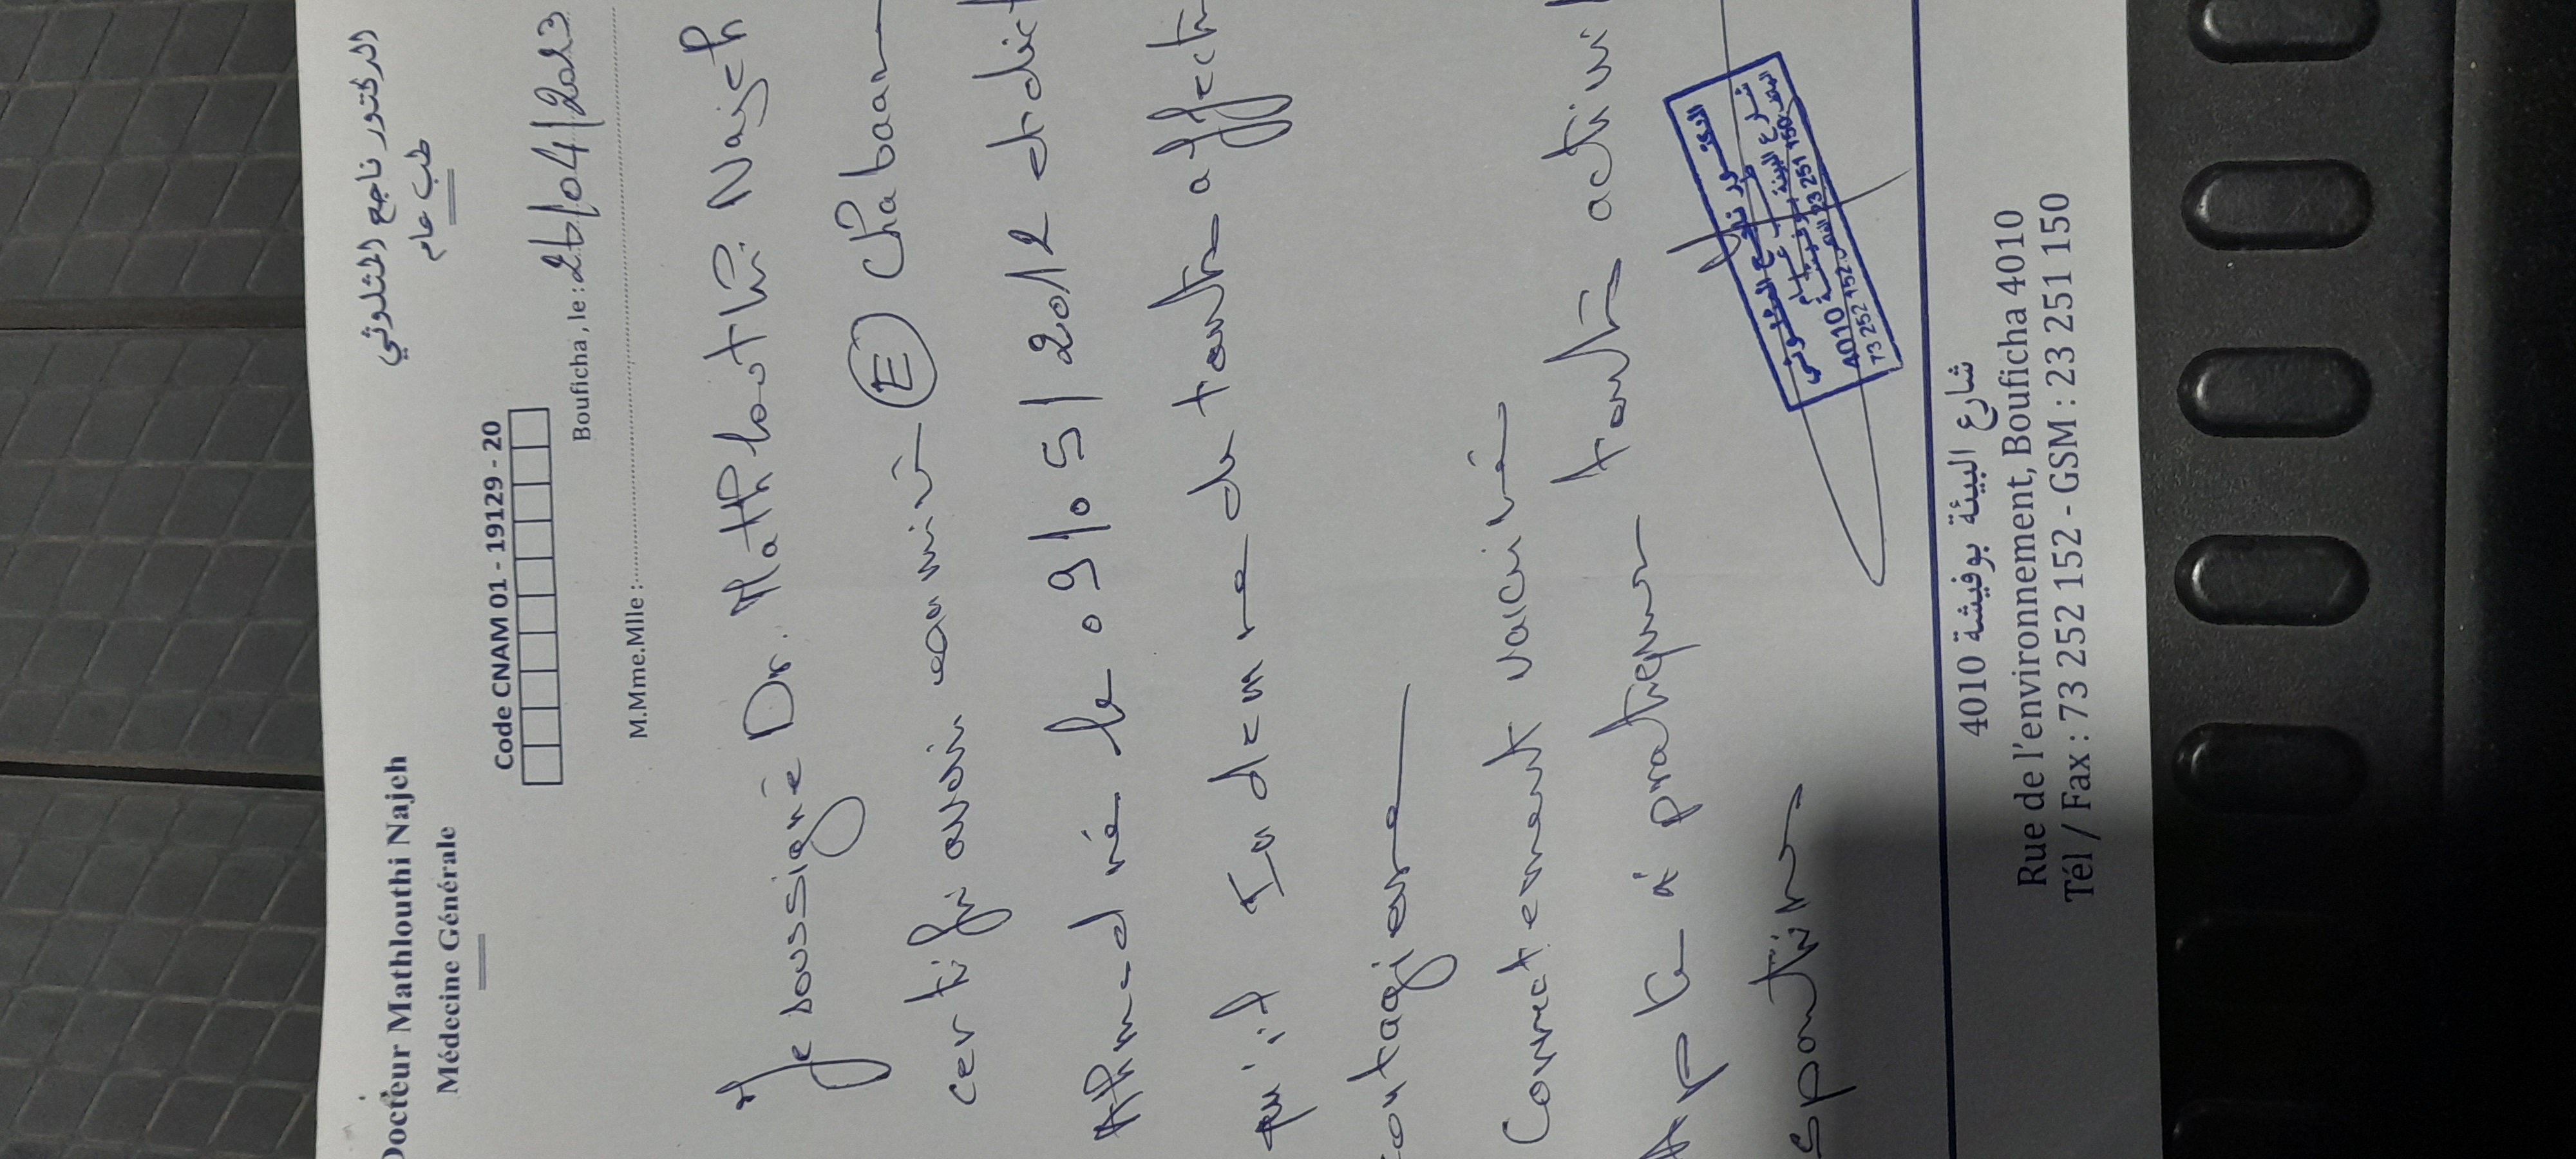 Docteur Mathlouthi Najeh
Médecine Générale
الدكتور ناجع المثلوثي
طب عام
Code CNAM 01 - 19129 - 20
Bouficha , le : 26/04/2023
M.Mme.Mlle :
Je soussigné Dr. Mathlouthi Najeh
certifie avoir examiné (E) Chabaan
Ahmed né le 09/05/2012 et dict
qu'il Indemne de toute affecti
contagieuse
Correctement vacciné
Apte à pratiquer toute activi
sportive
الدكتور ناجع المثلوثي
طب عام
شارع البيئة بوفيشة 4010
73 252 152 23 251 150
شارع البيئة بوفيشة 4010
Rue de l'environnement, Bouficha 4010
Tél / Fax : 73 252 152 - GSM : 23 251 150